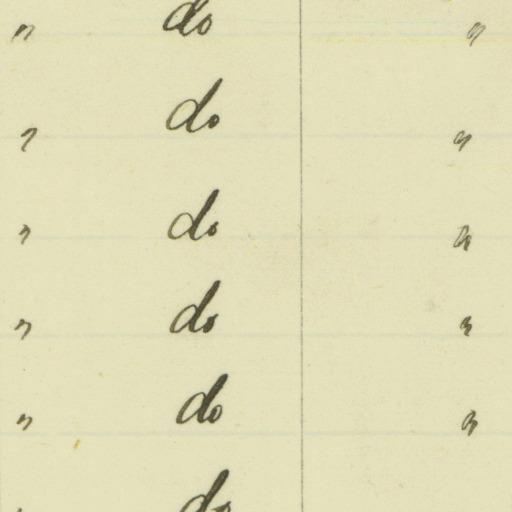 " do "
" do "
" do "
" do "
" do "
" do